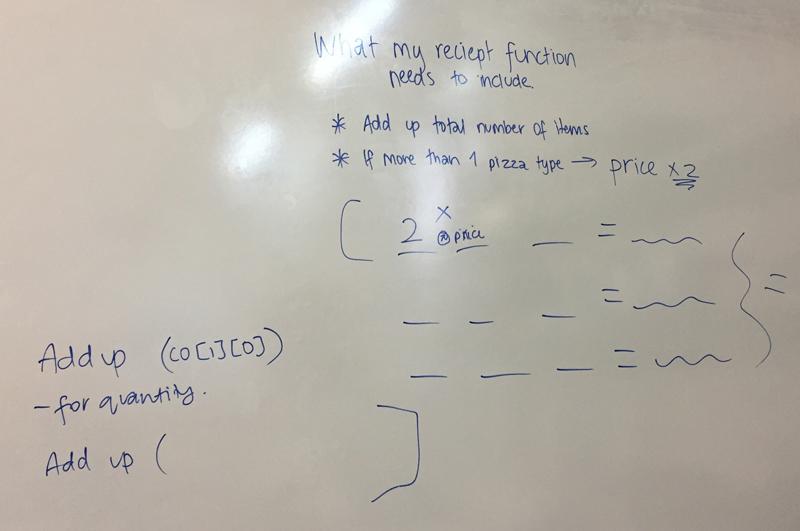 What my reciept function
needs to include.
* Add up total number of items
* If more than 1 pizza type → price x2
[ 2 x @ price __ = 
__ __ __ =
__ __ __ = } =
]
Add up (co[1][0])
- for quantity.
Add up (